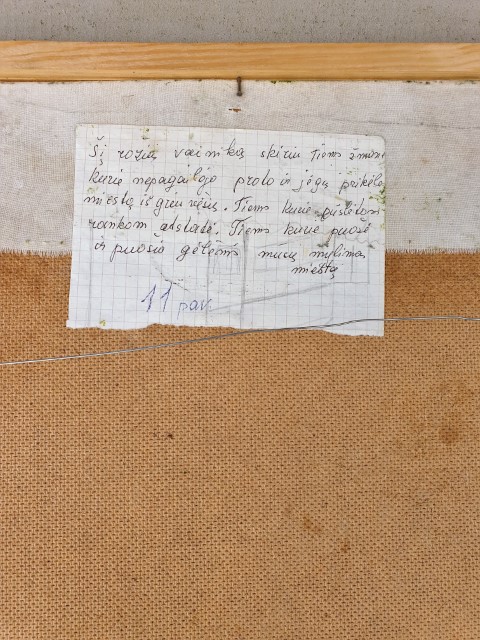 Šį rožių vainiką skiriu Tiems žmonėm
kurie nepagailėjo proto ir jėgų prikėlė
miestą iš griuvėsių. Tiems kurie
rankom atstatė. Tiems kurie puošė
ir puošia gėlėmis mūsų mylimą
miestą
11 pav.